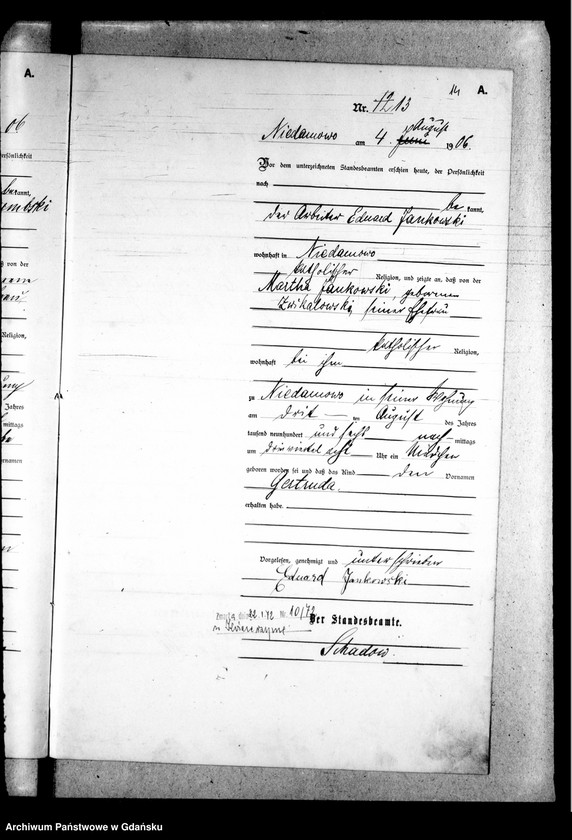 A.
06
ersönlichkeit
kannt,
ß von der
Religion,
Jahres
mittags
ornamen
14 A.
Nr. 12 13
August
Niedamowo am 4. Juni 1906.
Vor dem unterzeichneten Standesbeamten erschien heute, der Persönlichkeit
nach be kannt,
der Arbeiter Eduard Jankowski
wohnhaft in Niedamowo
katholischer Religion, und zeigte an, daß von der
Martha Jankowski, geborenen
Zwikalowski, seiner Ehefrau
katholischer Religion,
wohnhaft bei ihm
zu Niedamowo in seiner Wohnung
am drit ten August des Jahres
tausend neunhundert und sechs nach mittags
um dreiviertel acht Uhr ein Mädchen
geboren worden sei und daß das Kind den Vornamen
Gertruda.
erhalten habe.
Vorgelesen, genehmigt und unterschrieben
Eduard Jankowski
22.1.72 Nr 10/72
Der Standesbeamte.
Schadow.
Archiwum Państwowe w Gdańsku